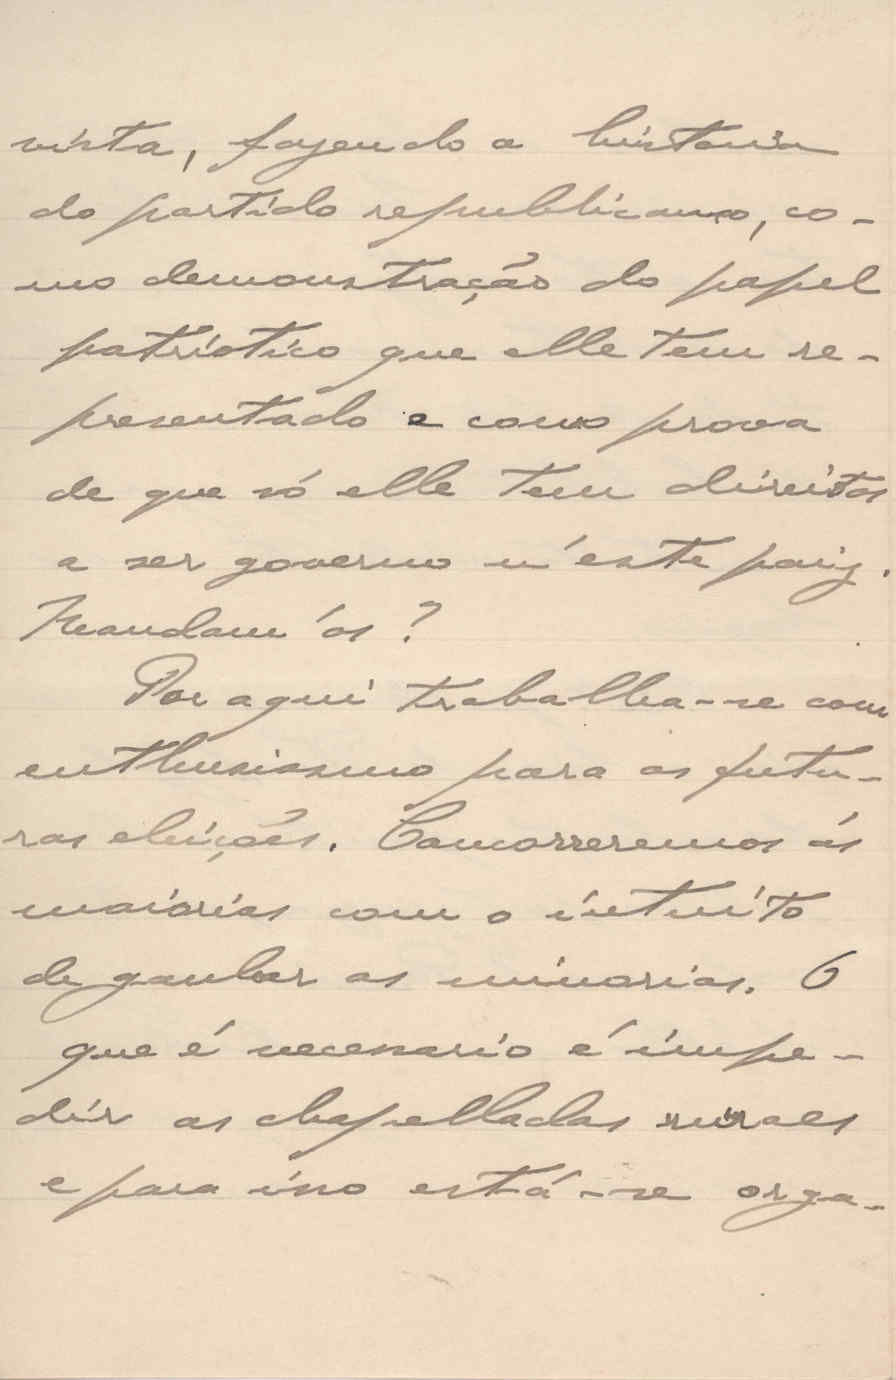 vista, fazendo a historia
do partido republicano, co-
mo demonstração do papel
patriotico que elle tem re-
presentado e como prova
de que só elle tem direitos
a ser governo n'este paiz.
Mandam'os?
Por aqui trabalha-se com
enthusiasmo para as futu-
ras eleições. Concorreremos ás
maiorias com o intuito
de ganhar as minorias. O
que é necessario é impe-
dir as chapelladas ruraes
e para isso está-se orga-